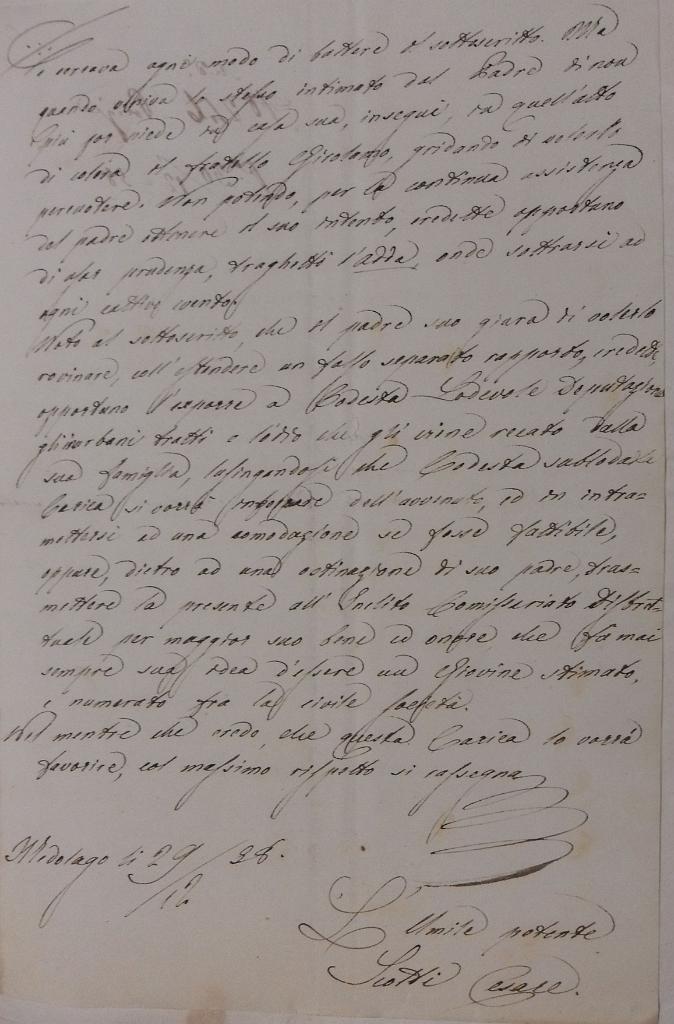 cercava ogni modo di battere il sottoscritto. Ma
quando veniva lo stesso intimato dal Padre di non
più por piede in casa sua, inseguì, in quell'atto
di colera il fratello Girolamo, gridando di volerlo
percuotere. Non potendo, per la continua assistenza
del padre ottenere il suo intento, credette opportuno
di prudenza, traghetti l'adda, onde sottrarsi ad
ogni cattivo evento.
Noto al sottoscritto, che il padre suo giura di volerlo
rovinare, coll'estendere un falso separato rapporto, credette
opportuno l'esporre a Codesta Lodevole Deputazione
gli inurbani tratti e l'odio che gli viene recato dalla
sua famiglia, lusingandosi che Codesta sullodata
Carica si vorrà dell'avvenuto, ed in intra=
mettersi ad una comodazione se fosse fattibile,
oppure, dietro ad una ostinazione di suo padre, tras=
mettere la presente all'Inclito Commissariato Distret=
tuale per maggior suo bene ed onore che fù mai
sempre sua idea d'essere un Giovine stimato,
e numerato fra la civile società.
Nel mentre che credo, che questa Carica lo vorrà
favorire, col massimo rispetto si rassegna
Medolago li 29/12 38.
L'Umile potente
Scotti Cesare.